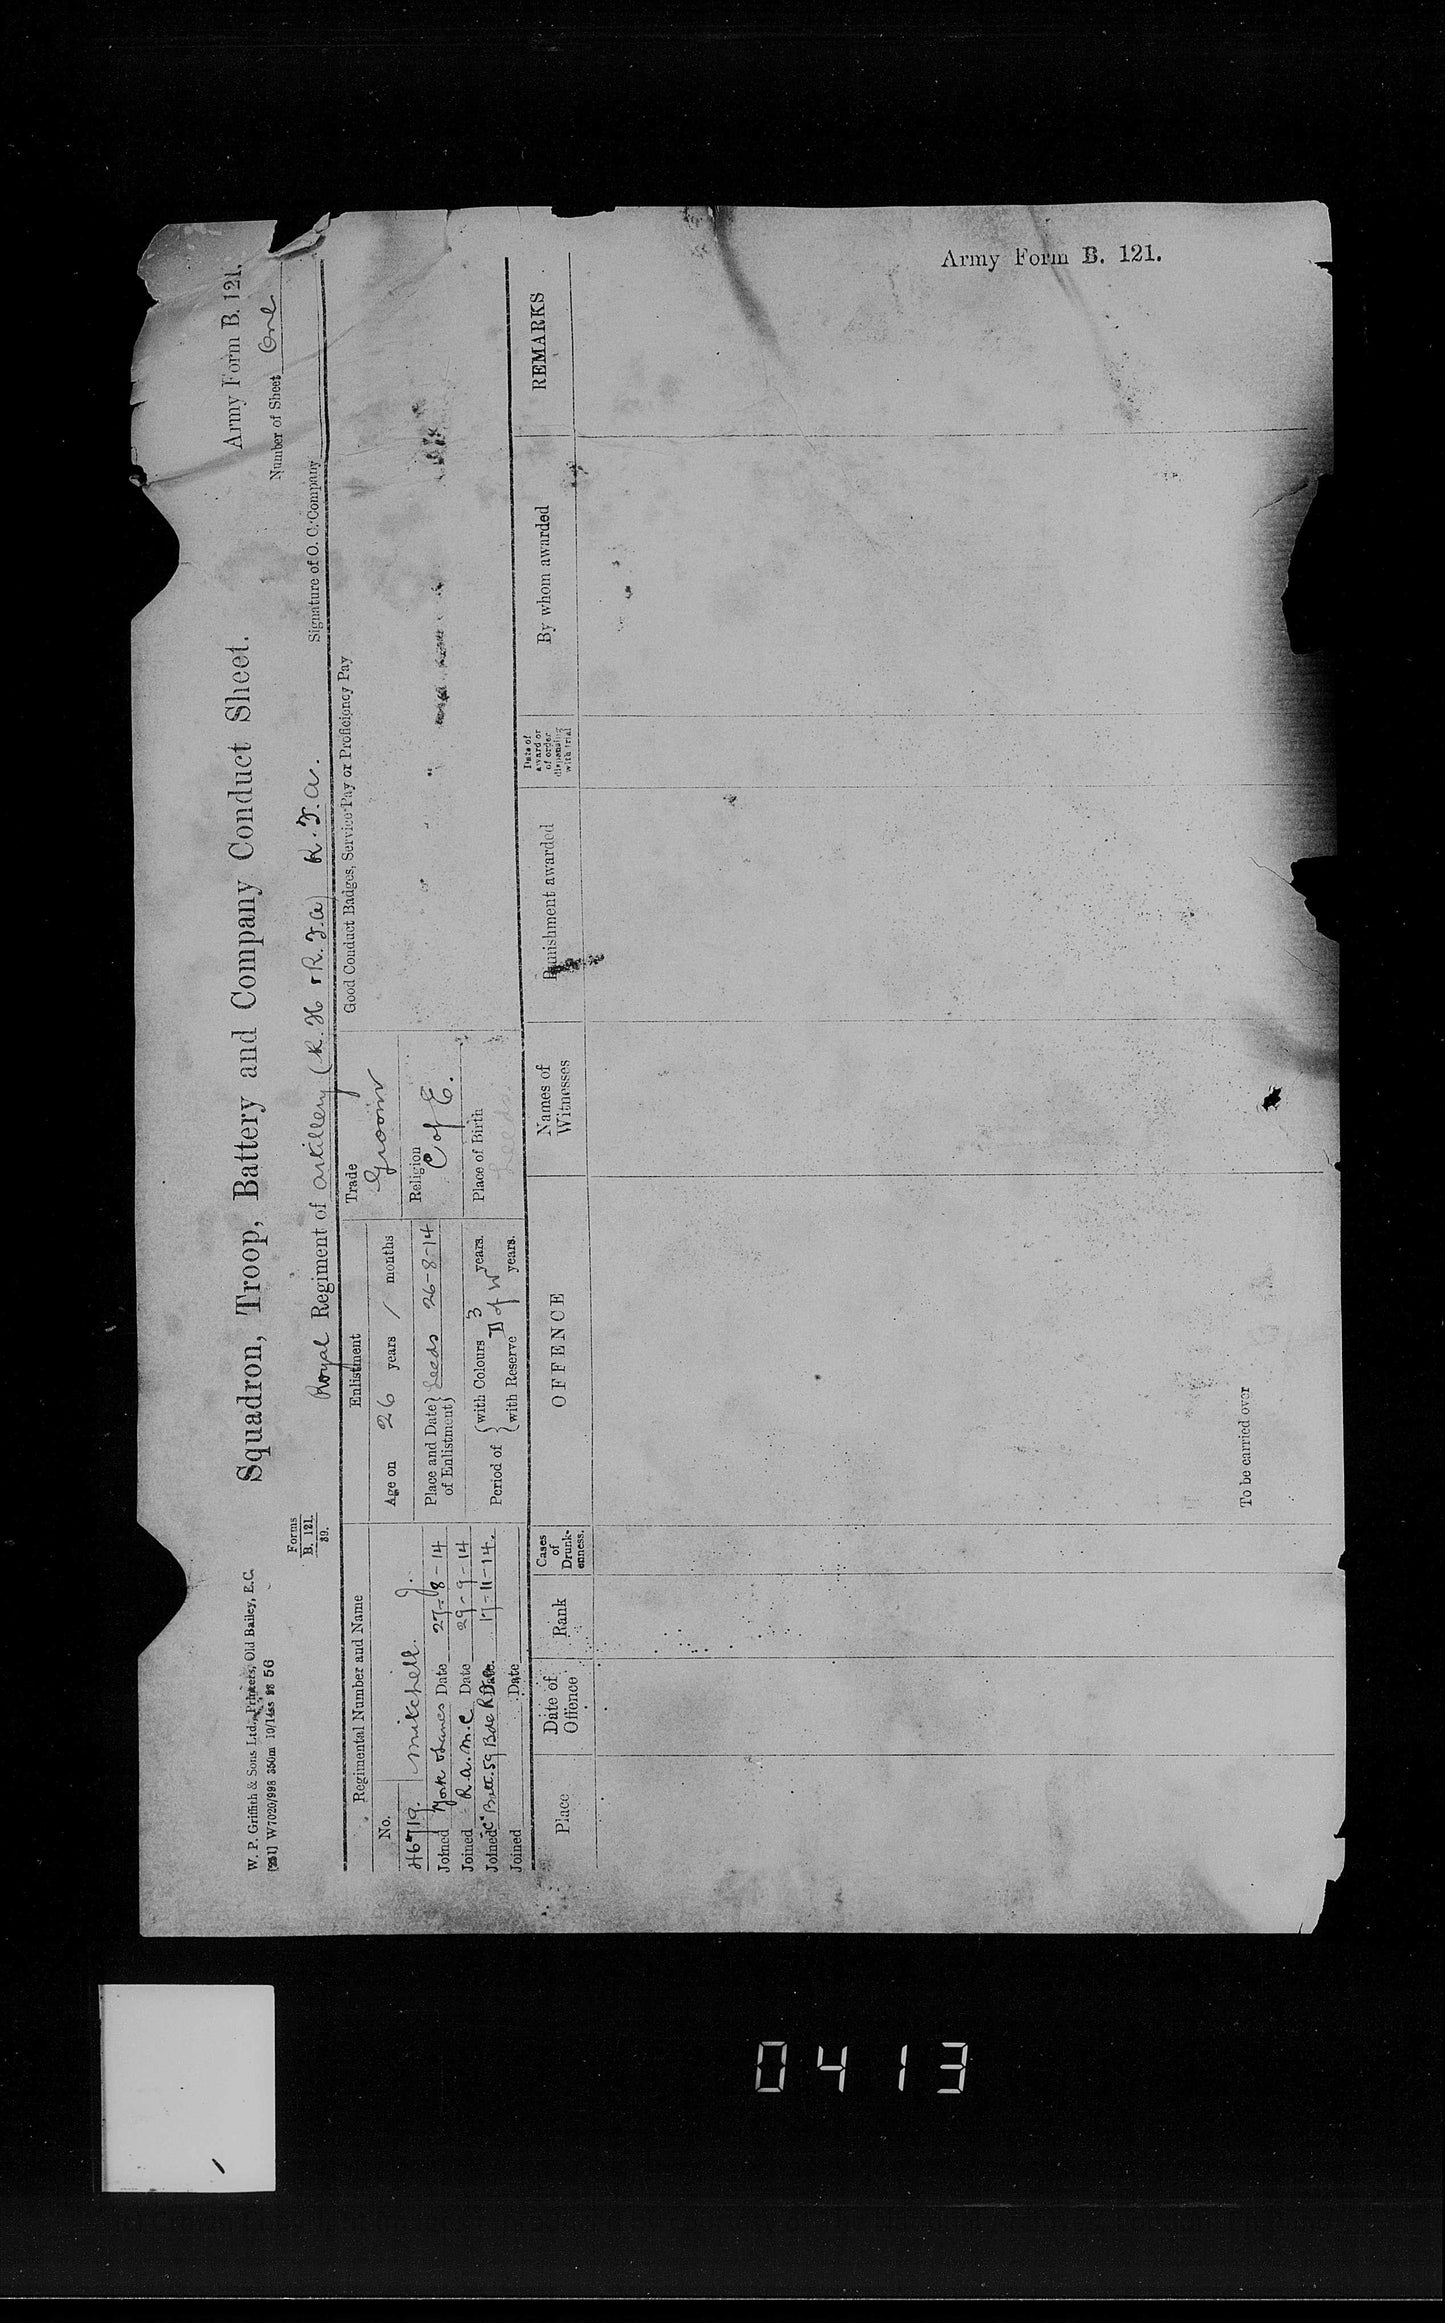 Army Form B. 121.
W. P. Griffith & Sons Ltd., Printers, Old Bailey, E.C.
W7020/998 350m 10/14 56
Forms
B. 121.
39.
Squadron, Troop, Battery and Company Conduct Sheet.
Army Form B. 121.
Number of Sheet One
Royal Regiment of artillery (R.H & R.F.a) R.F.a.
Signature of O. C. Company
Regimental Number and Name
No.
46719.
Mitchell. J.
Joined York & Lancs Date 27-8-14
Joined R.A.M.C Date 29-9-14
Joined "C" Batt. 59 Bde R Date. 17-11-14.
Joined Date
Enlistment
Age on 26 years / months
Place and Date of Enlistment Leeds 26-8-14
Period of with Colours 3 years.
with Reserve D of W years.
Trade
Groom
Religion
C of E.
Place of Birth
Leeds
Good Conduct Badges, Service Pay or Proficiency Pay
Place
Date of Offence
Rank
Cases of Drunk-enness.
OFFENCE
Names of Witnesses
Punishment awarded
Date of award or of order dispensing with trial
By whom awarded
REMARKS
To be carried over
0413